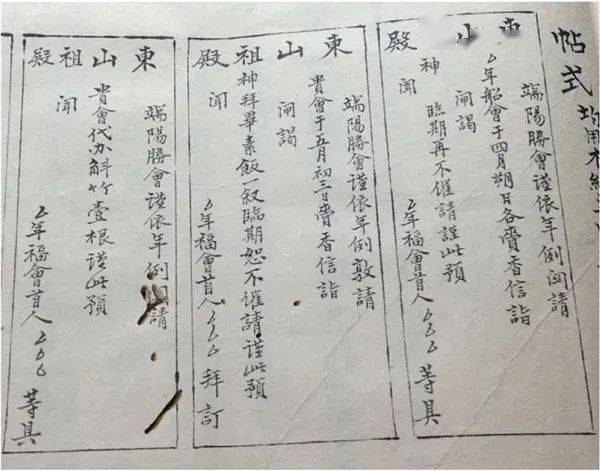 帖式
均用
東山殿
端陽勝會謹依年例闔請
厶年船會于四月朔日各賫香信詣
闸謁
神 臨期再不催請謹此預
聞
厶年福會首人厶厶厶等具
東山祖殿
端陽勝會謹依年例敦請
貴會于五月初三日賫香信詣
闸謁
神拜畢素飯一叙臨期恕不催請謹此預
聞
厶年福會首人厶厶厶拜訂
東山祖殿
端陽勝會謹依年例請
貴會代办斛竹壹根谨此預
聞
厶年福會首人厶厶厶等具